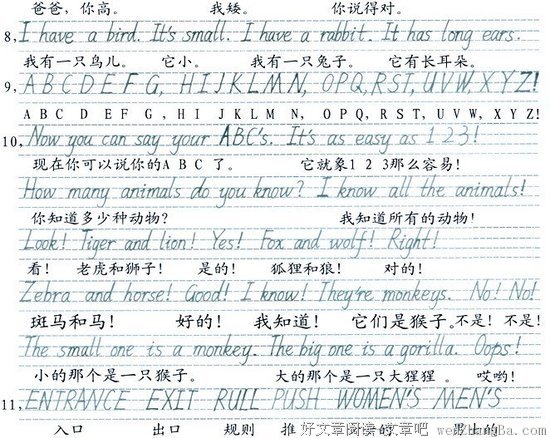 爸爸，你高。 我矮。 你说得对。
8, I have a bird. It's small. I have a rabbit. It has long ears.
我有一只鸟儿。 它小。 我有一只兔子。 它有长耳朵。
9, A B C D E F G, H I J K L M N, O P Q, R S T, U V W, X Y Z!
A B C D E F G , H I J K L M N, O P Q, R S T, U V W, X Y Z!
10, Now you can say your ABC's. It's as easy as 1 2 3!
现在你可以说你的A B C 了。 它就象1 2 3那么容易!
How many animals do you know? I know all the animals!
你知道多少种动物? 我知道所有的动物!
Look! Tiger and lion! Yes! Fox and wolf! Right!
看! 老虎和狮子! 是的! 狐狸和狼! 对的!
Zebra and horse! Good! I know! They're monkeys. No! No!
斑马和马! 好的! 我知道! 它们是猴子。不是! 不是!
The small one is a monkey. The big one is a gorilla. Oops!
小的那个是一只猴子。 大的那个是一只大猩猩 。 哎哟!
11, ENTRANCE EXIT RULL PUSH WOMEN'S MEN'S
入口 出口 规则 推 女的 男士的
好文章阅读:文章吧 wenzhangBa.com